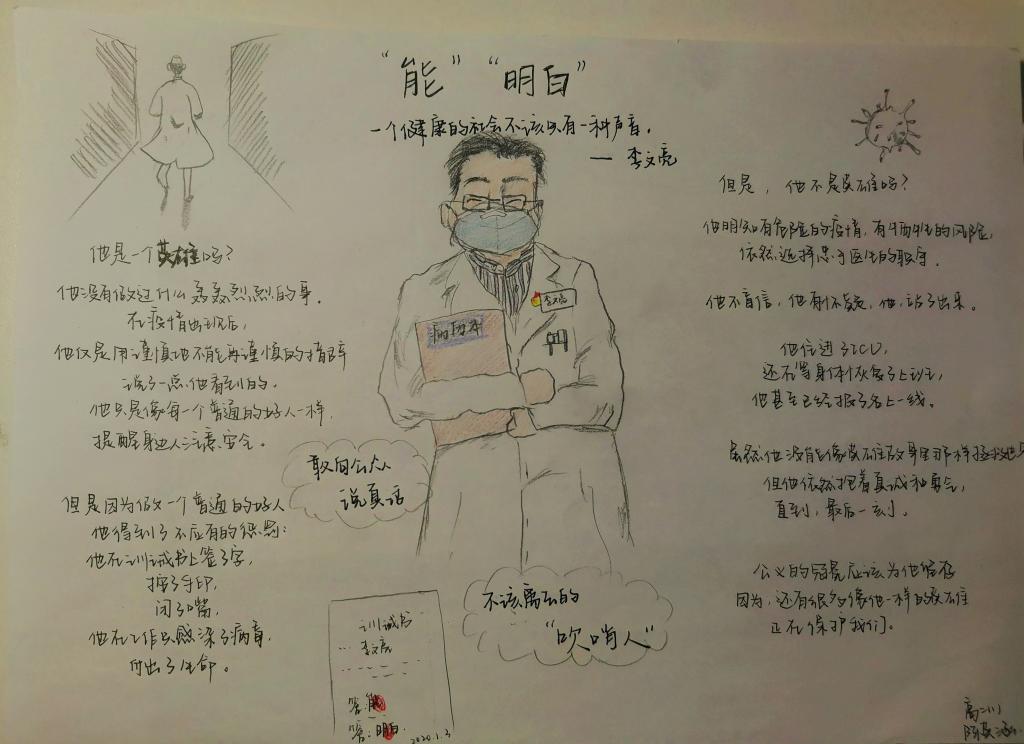 “能”“明白”
一个健康的社会不该只有一种声音。
— 李文亮
他是一个英雄吗?
他没有做过什么轰轰烈烈的事。
在疫情出现后,
他仅是用谨慎地不能再谨慎的措辞
说了一点他看到的。
他只是像每一个普通的好人一样,
提醒身边人注意安全。
但是因为做一个普通的好人
他得到了不应有的惩罚:
他在训诫书上签了字,
按了手印,
闭了嘴,
他在工作中感染了病毒,
付出了生命。
李文亮
病历本
敢向公众
说真话
不该离去的
“吹哨人”
训诫书
李文亮
答:能
答:明白.
2020.1.3
但是,他不是英雄吗?
他明知有危险的疫情,有牺牲的风险,
依然选择忠于医生的职守.
他不盲信,他有怀疑,他,站了出来。
他住进了ICU,
还不等身体恢复了上班,
他甚至已经报了名上一线。
虽然他没能像英雄故事里那样拯救地
但他依然抱着真诚和勇气,
直到,最后一刻。
公义的冠冕应该为他留存
因为,还有很多像他一样的英雄
正在保护我们。